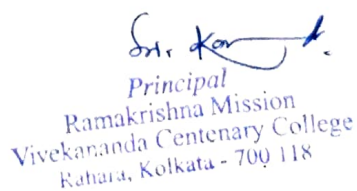 Principal
Ramakrishna Mission
Vivekananda Centenary College
Rahara, Kolkata - 700 118